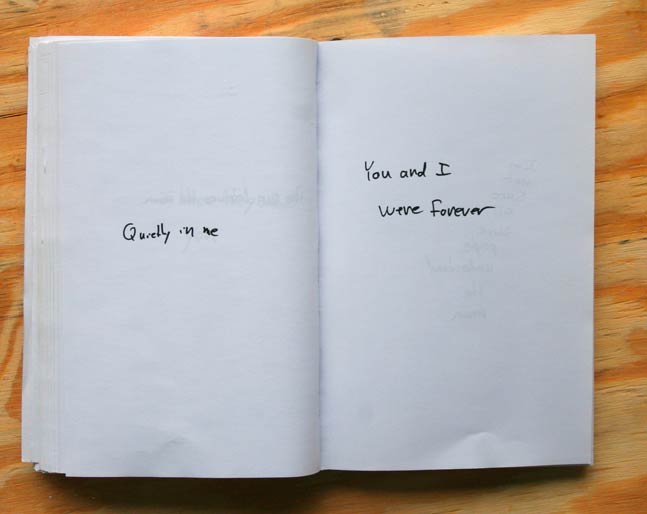 Quietly in me
You and I
were forever